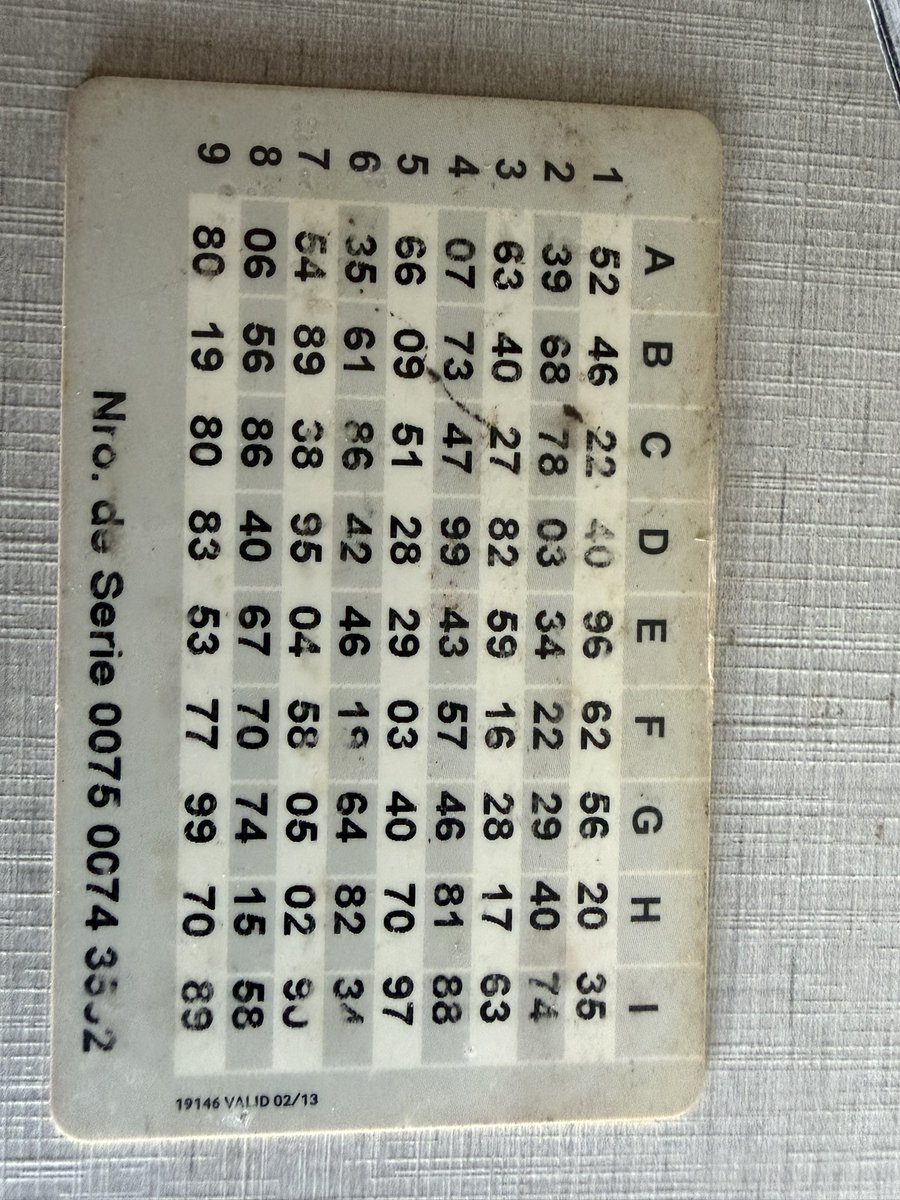 A B C D E F G H I
1 52 46 22 40 96 62 56 20 35
2 39 68 78 03 34 22 29 40 74
3 63 40 27 82 59 16 28 17 63
4 07 73 47 99 43 57 46 81 88
5 66 09 51 28 29 03 40 70 97
6 35 61 86 42 46 64 82
7 54 89 38 95 04 58 05 02
8 06 56 86 40 67 70 74 15 58
9 80 19 80 83 53 77 99 70 89
Nro. de Serie 0075 0074
19146 VALID 02/13